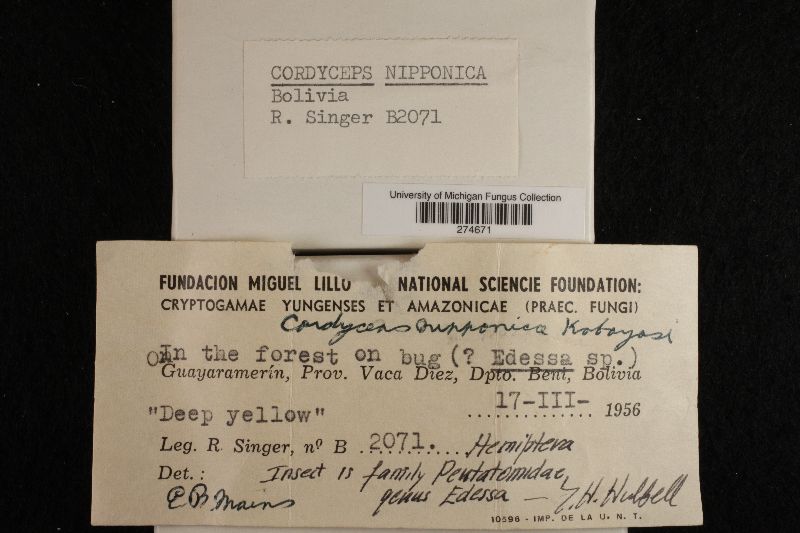 CORDYCEPS NIPPONICA
Bolivia
R. Singer B2071
University of Michigan Fungus Collection
274671
FUNDACION MIGUEL LILLO NATIONAL SCIENCIE FOUNDATION:
CRYPTOGAMAE YUNGENSES ET AMAZONICAE (PRAEC. FUNGI)
Cordyceps nipponica Kobayasi
On
In the forest on bug (? Edessa sp.)
Guayaramerín, Prov. Vaca Diez, Dpto. Beni, Bolivia
17-III- 1956
"Deep yellow"
Leg. R. Singer, nº B 2071. Hemiptera
Det.: Insect is family Pentatomidae,
E B Mains genus Edessa — T. H. Hubbell
10596 - IMP. DE LA U. N. T.